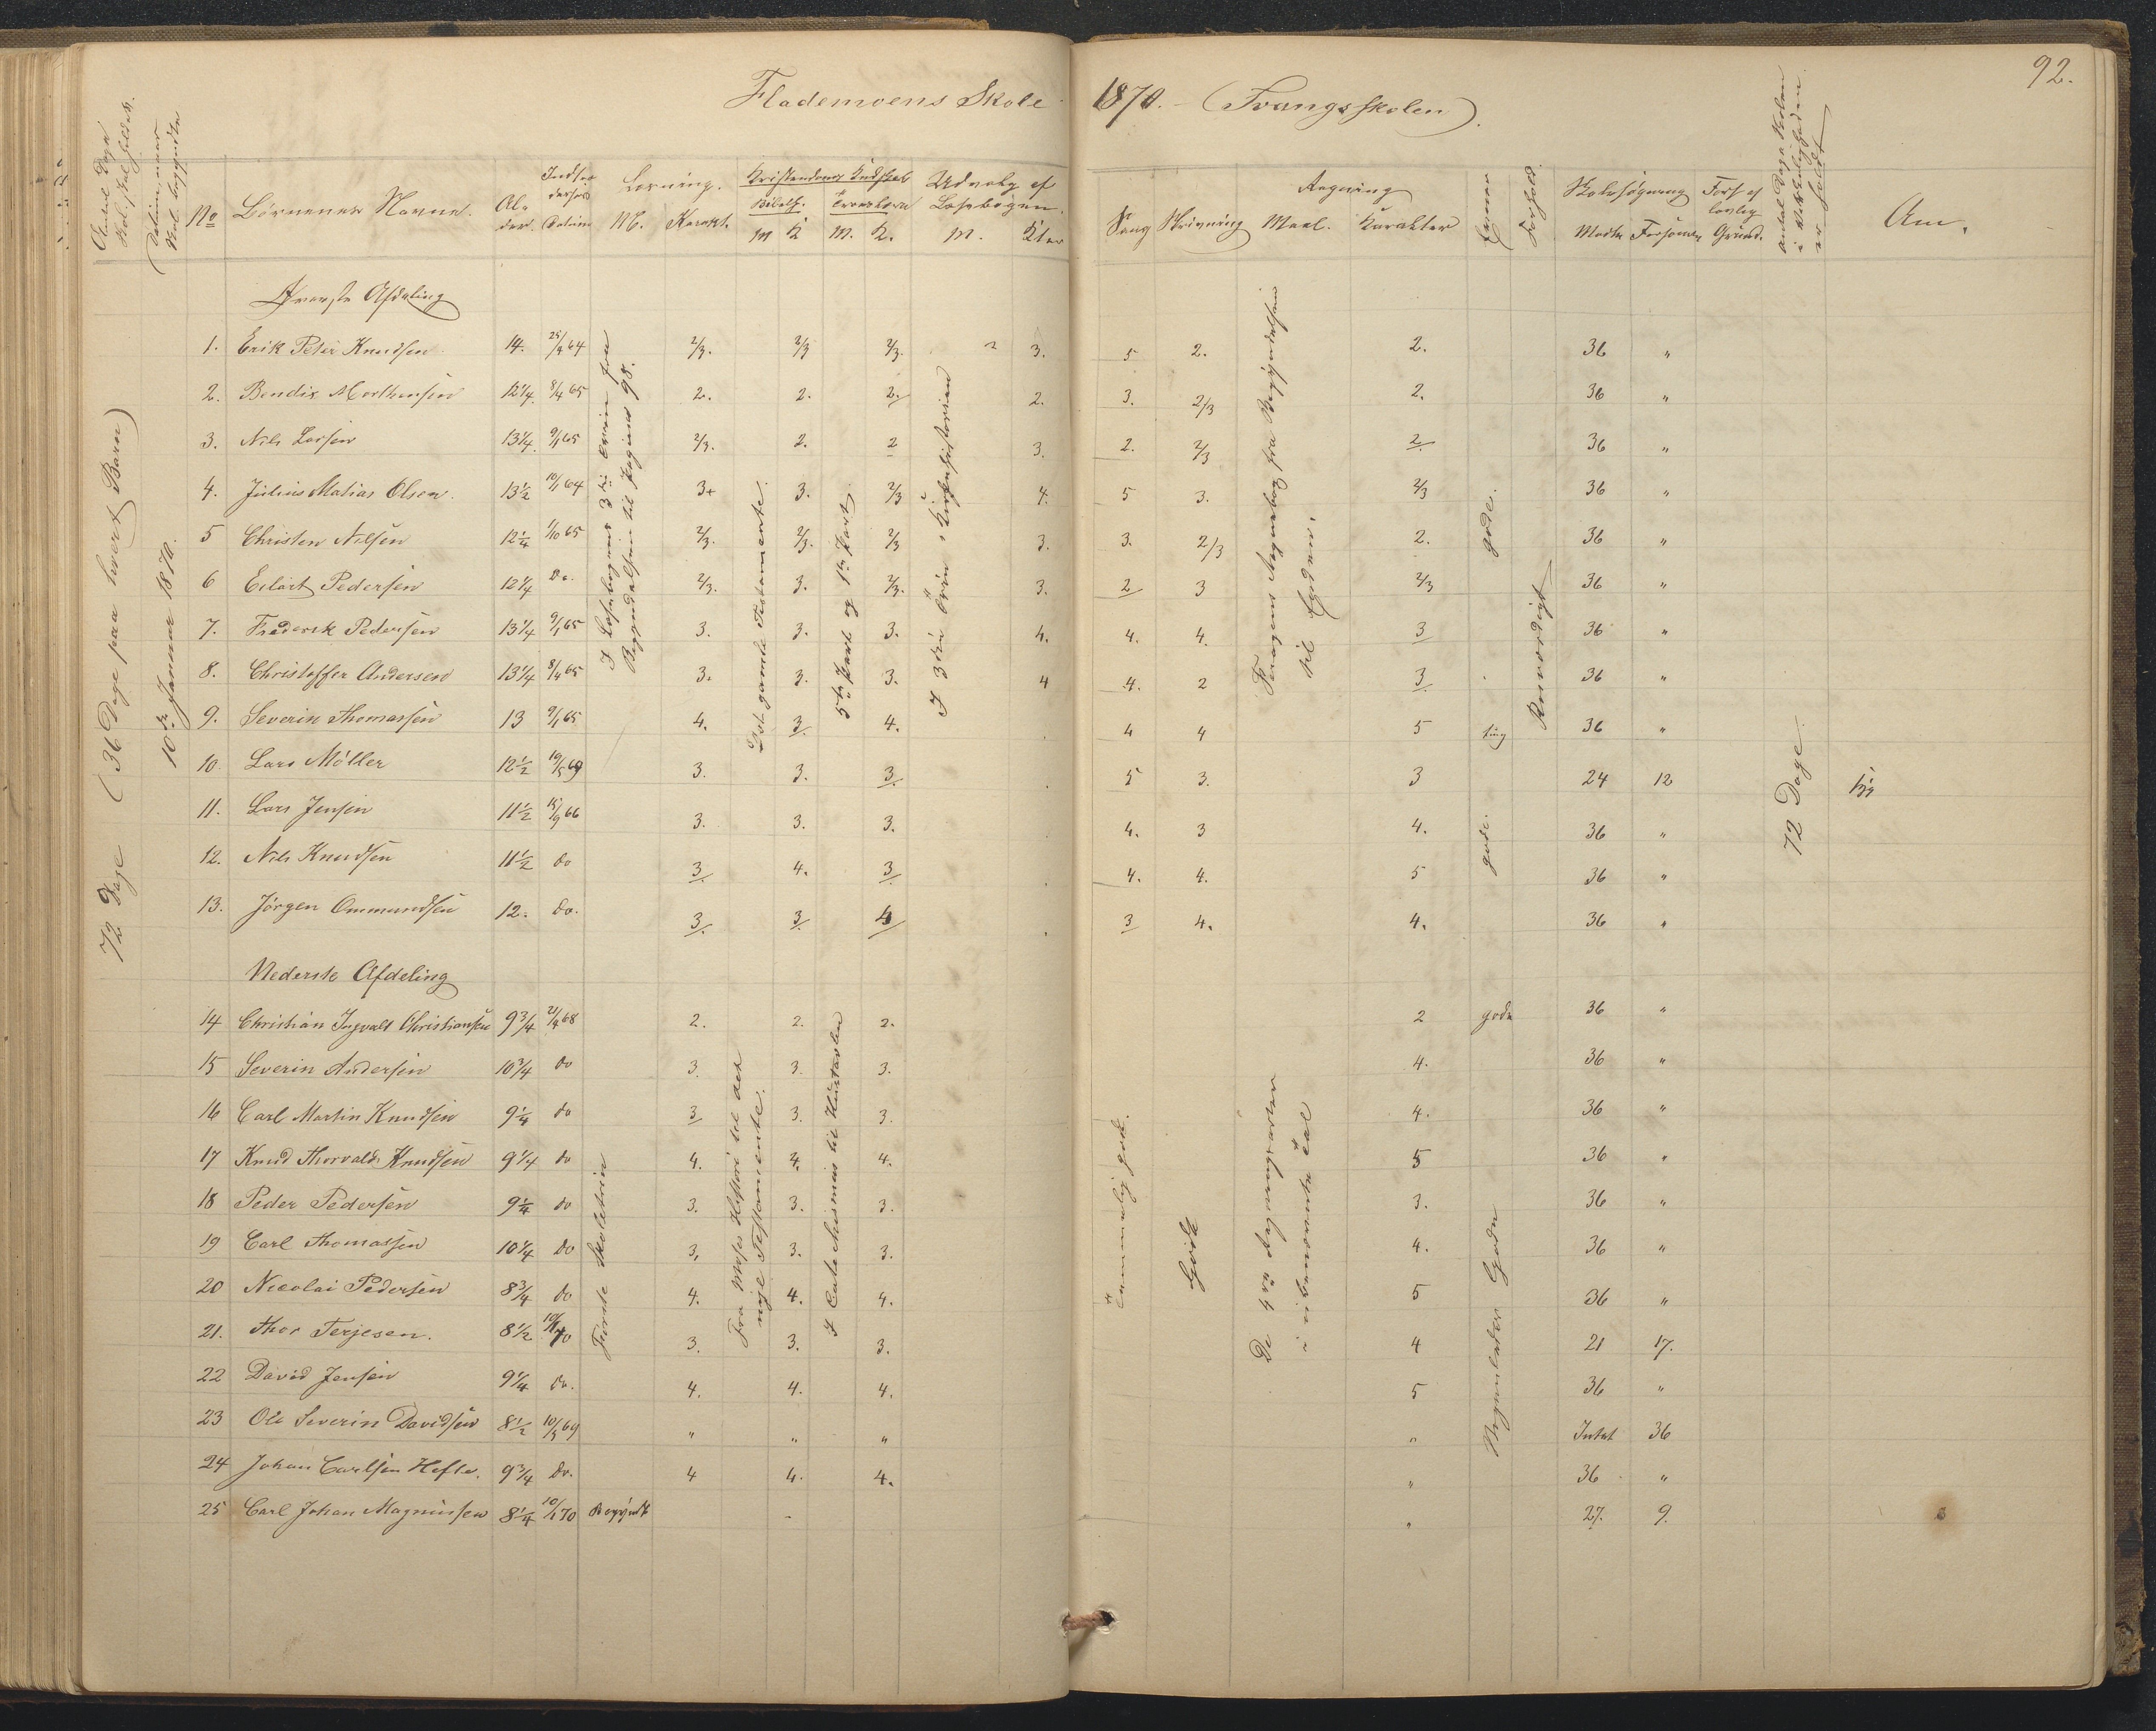 92.
Flademoens Skole 1870. – (Tvangsskolen).
No Børnenes Navne. Alder. Indskr Datum Læsning. M. Karakt. Kristendoms Kundskab Bibelh. M K Troeslære M. K. Udvalg af Læsebogen. M. Kter
Sang Skrivning Regning Maal. Karakter Evner Forhold. Skolesøgning Mødte Forsømm Fors af lovlig Grund. Antal Dage Skolen i Virkeligheden er holdt Anm.
72 Dage (36 Dage paa hvert Barn)
10de Januar 1870.
Øverste Afdeling
1. Erik Peter Knudsen 14. 25/4 64 2/3. 2/3 2/3. 3. 5 2. 2. 36 "
2. Bendix Morthensen 12 1/4 8/4 65 2. 2. 2. 2. 3. 2/3 2. 36 "
3. Nils Larsen 13 1/4 9/1 65 2/3. 2. 2 3. 2. 2/3 2. 36 "
4. Julius Matias Olsen. 13 1/2 10/1 64 3+ 3. 2/3 4. 5 3. 2/3 36 "
5 Christen Nilsen 12 1/4 1/10 65 2/3. 2/3. 2/3 3. 3. 2/3 2. 36 "
6 Eilart Pedersen 12 1/4 Do. 2/3. 3. 2/3. 3. 2 3 2/3 36 "
7. Frederik Pedersen 13 1/4 9/1 65 3. 3. 3. 4. 4. 4. 3 36 "
8. Christoffer Andersen 13 1/4 8/4 65 3. 3. 3. 4 4. 2 3. 36 "
9. Severin Thomassen 13 9/1 65 4. 3. 4. 4 4 5 ring 36 "
10. Lars Möller 12 1/2 19/5 69 3. 3. 3. 5 3. 3 24 12
11. Lars Jensen 11 1/2 15/9 66 3. 3. 3. 4. 3 4. 36 "
12. Nils Knudsen 11 1/2 do 3. 4. 3. 4. 4. 5 36 "
13. Jörgen Ommundsen 12. do. 3. 3. 4 3 4. 4. 36 "
I Læsebogens 3die Trin fra
Begyndelsen til Pagina 98.
Det gamle Testamente.
5te Part og 1ste Part.
I 3die Trin, Kirkehistorien
Regnebog fra Begyndelsen
til Enden.
gode.
Rosværdigt
gode.
72 Dage.
Nederste Afdeling
14 Christian Ingvald Christiansen 9 3/4 21/4 68 2. 2. 2. 2 gode 36 "
15 Severin Andersen 10 3/4 do 3. 3. 3. 4. 36 "
16 Carl Martin Knudsen 9 1/4 do 3 3. 3. 4. 36 "
17 Knud Thorvald Knudsen 9 1/4 do 4. 4. 4. 5 36 "
18 Peder Pedersen 9 1/4 do 3. 3. 3. 3. 36 "
19 Carl Thomassen 10 1/4 do 3. 3. 3. 4. 36 "
20 Nicolai Pedersen 8 3/4 do 4. 4. 4. 5 36 "
21. Thor Terjesen. 8 1/2 10/1 70 3. 3. 3. 4 21 17.
22 David Jensen 9 1/4 do. 4. 4. 4. 5 36 "
23 Ole Severin Davidsen 8 1/2 10/3 69 " " " " Intet 36
24 Johan Carlsen Hefte. 9 3/4 do. 4 4. 4. " 36 "
25 Carl Johan Magnussen 8 1/4 10/1 70 Begyndt " 27. 9.
Første Skoletrin
Fra Mose Historie til det
nye Testamente.
I Catechismus til Hustavlen
Temmelig godt.
Godt
De 4re Regningsarter
i ubenævnte Tal
Gode